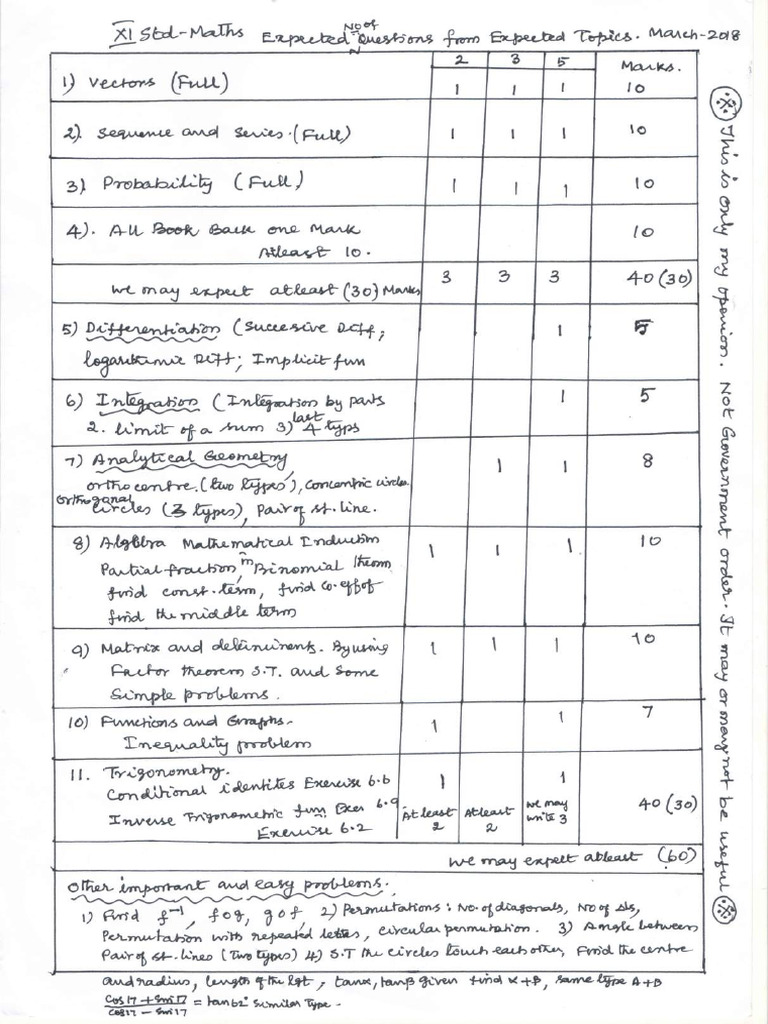 XI Std-Maths Expected No of Questions from Expected Topics. March-2018
2 3 5 Marks.
1) Vectors (Full) 1 1 1 10
2). Sequence and Series. (Full) 1 1 1 10
3) Probability (Full) 1 1 1 10
4). All Book Back one Mark 10
Atleast 10.
We may expect atleast (30) Marks 3 3 3 40 (30)
5) Differentiation (Succesive Diff; 1 5
logarithmic Diff; Implicit fun
6) Integration (Integration by parts 1 5
2. limit of a sum 3) last 4 typs
7) Analytical Geometry 1 1 8
orthocentre. (two types), concentric circles.
orthogonal circles (3 types), Pair of st. line.
8) Algebra Mathematical Induction 1 1 1 10
Partial fraction, in Binomial theorm
find const. term, find co-eff of
find the middle term
9) Matrix and deteminents. By using 1 1 1 10
Factor theorem S.T. and Some
Simple problems.
10) Functions and Graphs. 1 1 7
Inequality problem
11. Trigonometry. 1 1
Conditional identites Exercise 6.6
Inverse Trigonometric fun Exer 6.9 At least 2 Atleast 2 We may write 3 40 (30)
Exercise 6.2
We may expect atleast (60)
Other important and easy problems.
1) Find f⁻¹, fog, gof, 2) Permutations: No. of diagonals, No of Δls,
Permutation with repeated letters, circular permutation. 3) Angle between
Pair of st. lines (two types) 4) S.T the circles touch each other, Find the centre
and radius, length of the tgt, tanα, tanβ given find α+β, same type A+B
Cos17 + Sin17 / Cos17 - Sin17 = tan62° Similar Type.
This is only my openion. Not Government order. It may or may not be useful